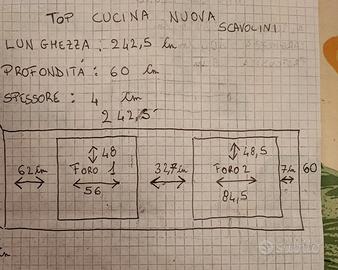 TOP CUCINA NUOVA
SCAVOLINI
LUNGHEZZA : 242,5 cm
PROFONDITÁ : 60 cm
SPESSORE : 4 cm
242,5
48
48,5
62 cm
FORO 1
32,7 cm
FORO 2
7 cm
60
56
84,5